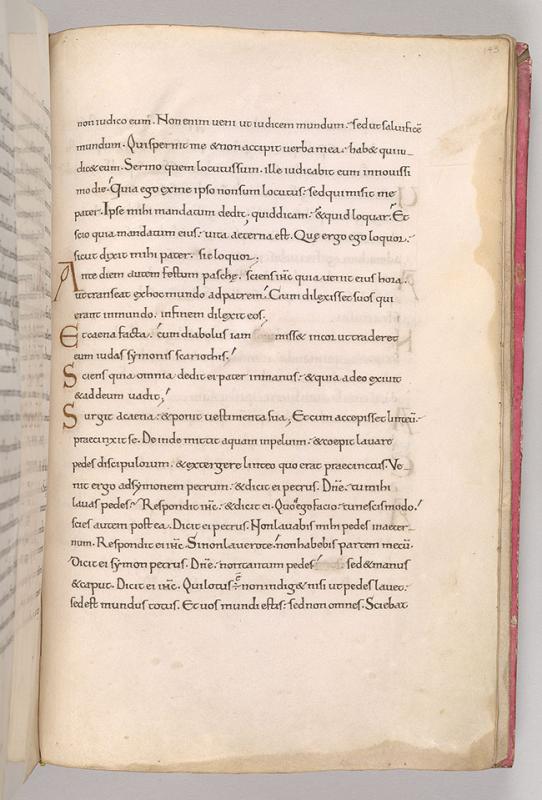 143
non iudico eum. Non enim veni ut iudicem mundum. sed ut salvificē
mundum. Qui spernit me & non accipit verba mea. hab& qui iu-
dic& eum. Sermo quem locutus sum. ille iudicabit eum in novissi
mo die. Quia ego ex me ipso non sum locutus. sed qui misit me
pater. Ipse mihi mandatum dedit, quid dicam. & quid loquar. Et
scio quia mandatum eius. vita aeterna est. Quę ergo ego loquor.
sicut dixit mihi pater. sic loquor.
Ante diem autem festum paschę. sciens ihc quia venit eius hora.
ut transeat ex hoc mundo ad patrem. Cum dilexisset suos qui
erant in mundo. in finem dilexit eos.
Et caena facta. cum diabolus iam misiss& in cor ut traderet
eum iudas symonis scariothis.
Sciens quia omnia dedit ei pater in manus. & quia a deo exivit
& ad deum vadit,
Surgit a caena. & ponit vestimenta sua, Et cum accepisset linteū.
praecinxit se. Deinde mittit aquam in pelvim. & coepit lavare
pedes discipulorum. & extergere linteo quo erat praecinctus. Ve-
nit ergo ad symonem petrum. & dicit ei petrus. Dn̄e. tu mihi
lavas pedes? Respondit ihc. & dicit ei. Quod ego facio. tu nescis modo.
scies autem postea. Dicit ei petrus. Non lavabis mihi pedes in aeter-
num. Respondit ei ihc. Si non lavero te. non habebis partem mecū.
Dicit ei symon petrus. Dn̄e. non tantum pedes sed & manus
& caput. Dicit ei ihc. Qui lotus ē. non indig& nisi ut pedes lavet.
sed est mundus totus. Et vos mundi estis. sed non omnes. Sciebat